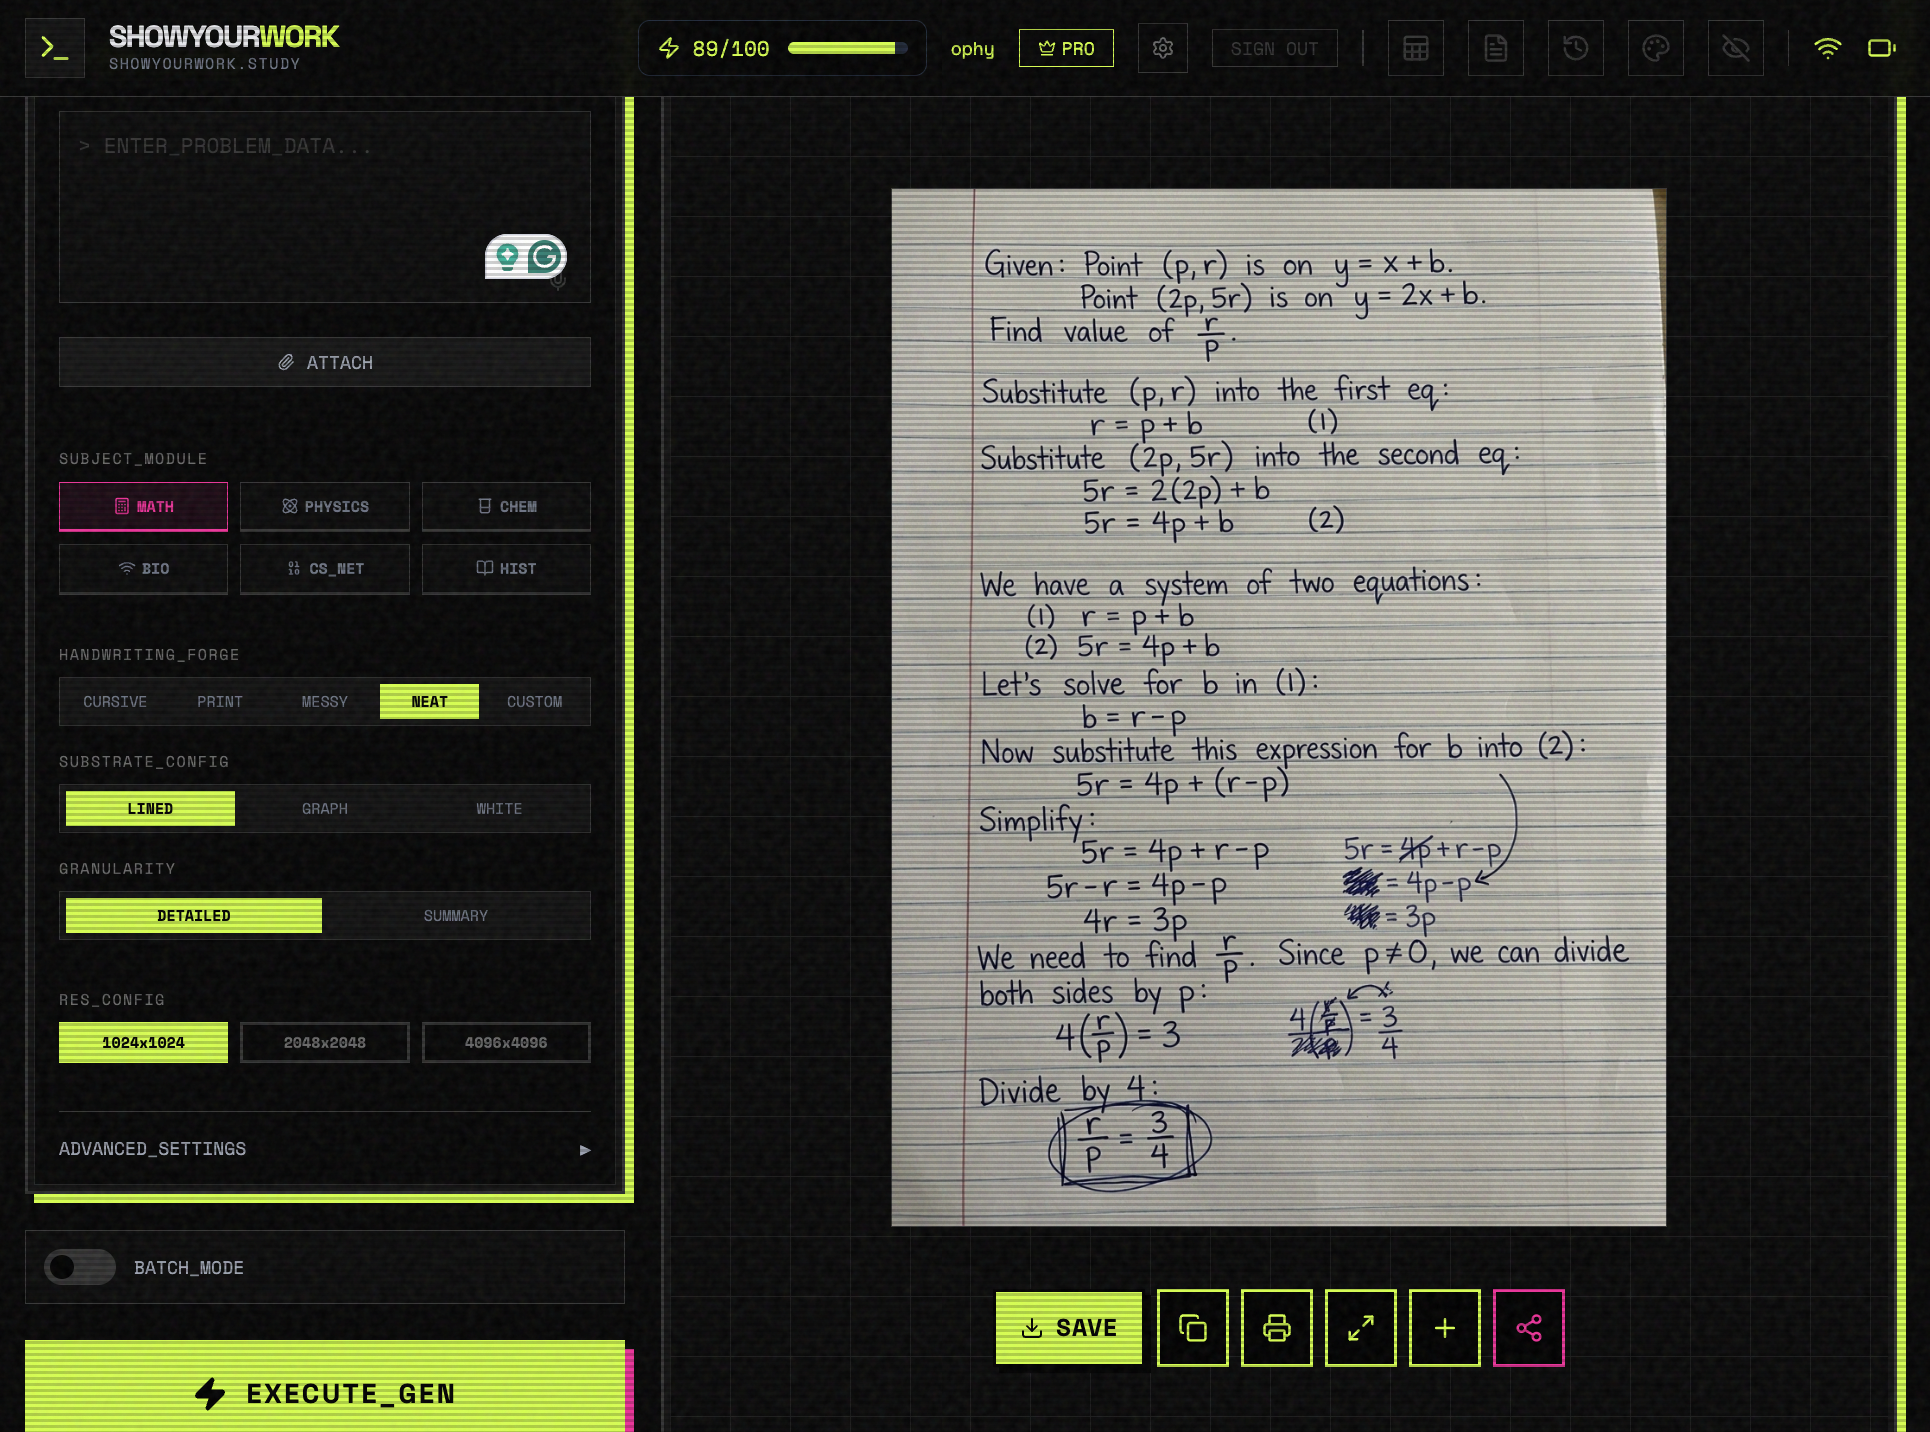 SHOWYOURWORK
SHOWYOURWORK.STUDY
89/100
ophy
PRO
SIGN OUT
> ENTER_PROBLEM_DATA...
ATTACH
SUBJECT_MODULE
MATH
PHYSICS
CHEM
BIO
CS_NET
HIST
HANDWRITING_FORGE
CURSIVE
PRINT
MESSY
NEAT
CUSTOM
SUBSTRATE_CONFIG
LINED
GRAPH
WHITE
GRANULARITY
DETAILED
SUMMARY
RES_CONFIG
1024x1024
2048x2048
4096x4096
ADVANCED_SETTINGS
BATCH_MODE
EXECUTE_GEN
Given: Point (p, r) is on y = x + b.
Point (2p, 5r) is on y = 2x + b.
Find value of r/p.
Substitute (p, r) into the first eq:
r = p + b (1)
Substitute (2p, 5r) into the second eq:
5r = 2(2p) + b
5r = 4p + b (2)
We have a system of two equations:
(1) r = p + b
(2) 5r = 4p + b
Let's solve for b in (1):
b = r - p
Now substitute this expression for b into (2):
5r = 4p + (r - p)
Simplify:
5r = 4p + r - p 5r = 4p + r - p
5r - r = 4p - p = 4p - p
4r = 3p = 3p
We need to find r/p. Since p ≠ 0, we can divide
both sides by p:
4(r/p) = 3 4(r/p) = 3/4
Divide by 4:
r/p = 3/4
SAVE